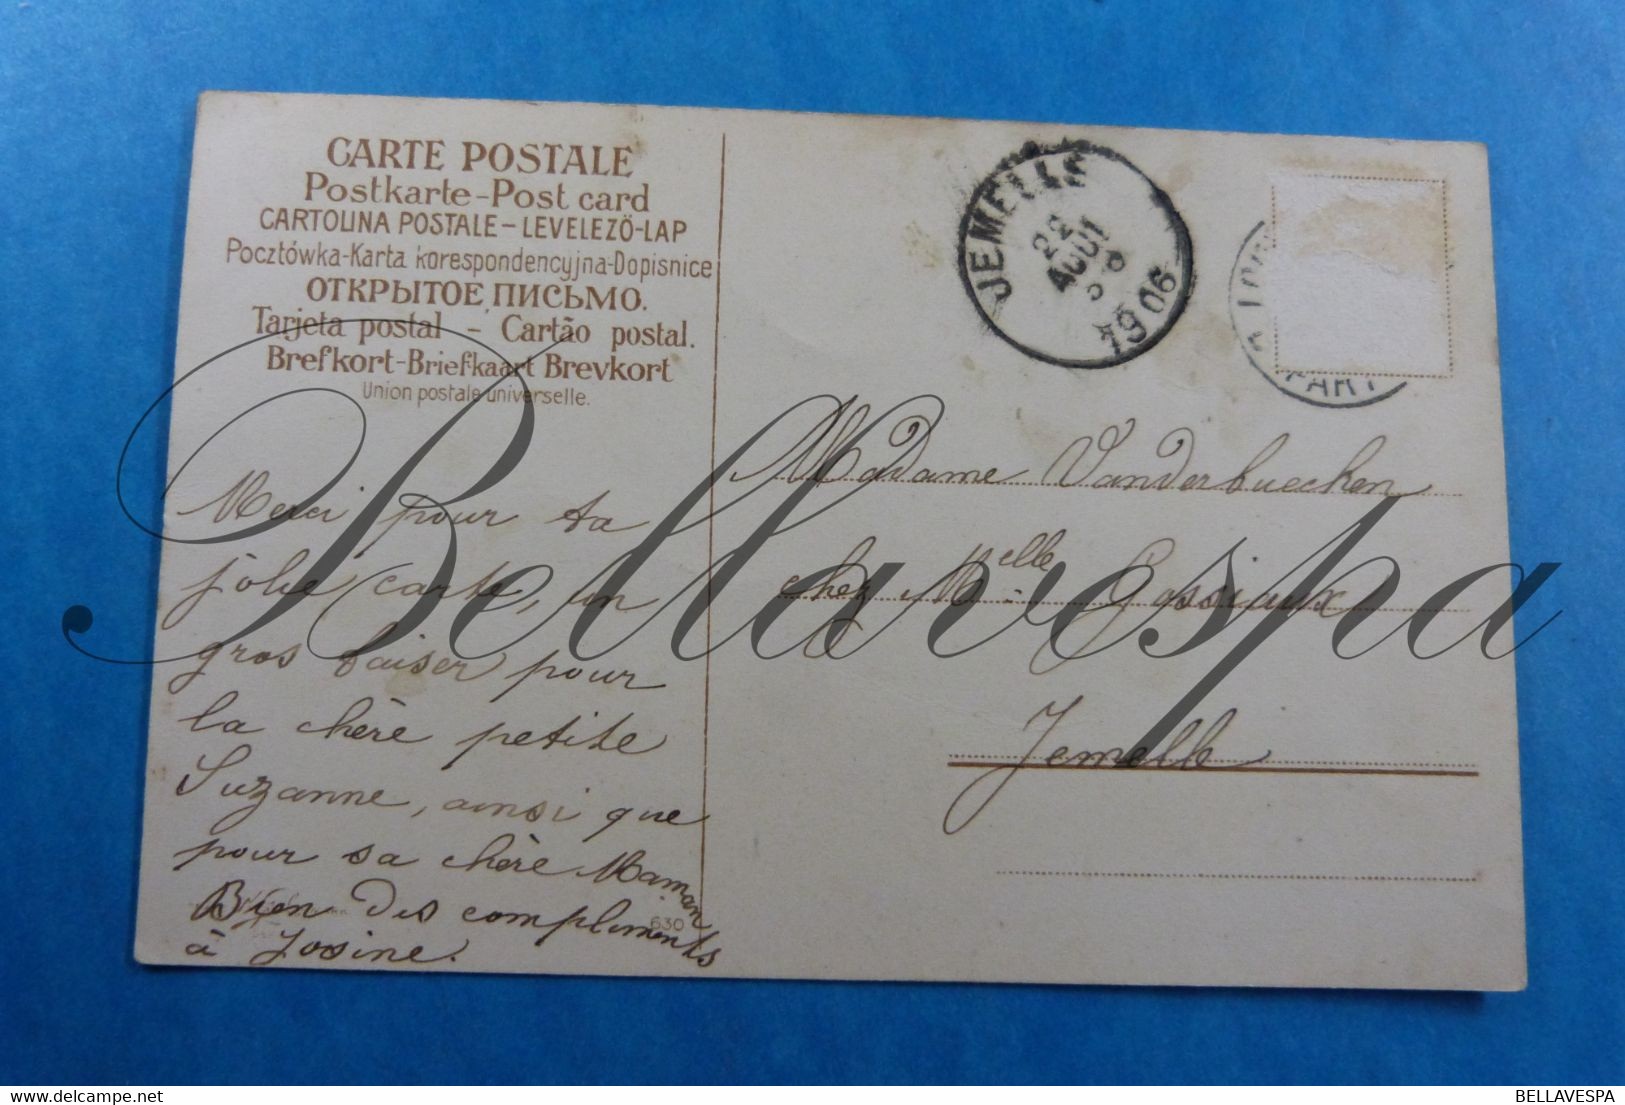 CARTE POSTALE
Postkarte-Post card
CARTOLINA POSTALE-LEVELEZÖ-LAP
Pocztówka-Karta korespondencyjna-Dopisnice
ОТКРЫТОЕ ПИСЬМО.
Tarjeta postal - Cartão postal.
Brefkort-Briefkaart Brevkort
Union postale universelle.
JEMELLE
22
AOUT
1906
PART
Madame Vanderbuecken
chez Melle. Gossiaux
Jemelle
Merci pour ta
jolie carte, un
gros baiser pour
la chère petite
Suzanne, ainsi que
pour sa chère Maman
Bien des compliments
à Josine.
630
Bellavespa
BELLAVESPA
delcampe.net